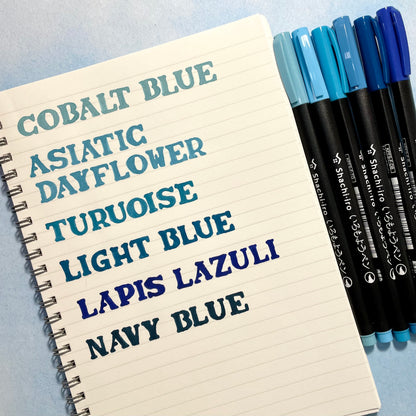 COBALT BLUE
ASIATIC
DAYFLOWER
TURUOISE
LIGHT BLUE
LAPIS LAZULI
NAVY BLUE
Shachi-iro
Shachi-iro
Shachi-iro
Shachi-iro